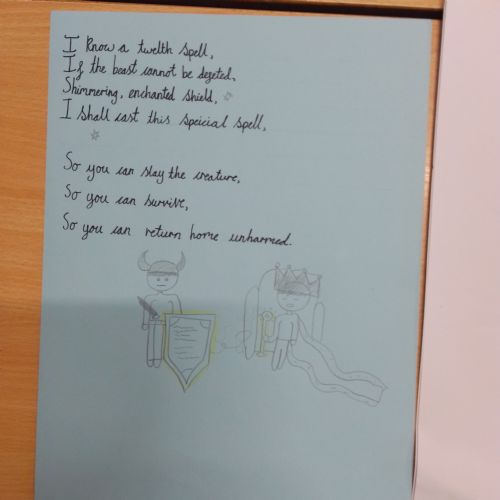 I know a twelth spell,
If the beast cannot be defeted,
Shimmering, enchanted shield,
I shall cast this speicial spell,
So you can slay the creature,
So you can survive,
So you can return home unharmed.